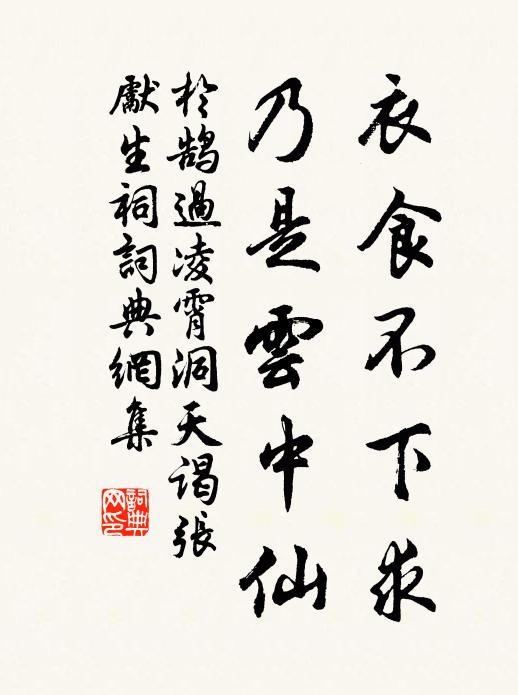 衣食不下求
乃是雲中仙
於鵠過凌霄洞天謁張
獻生祠詞典網集
詞典网印